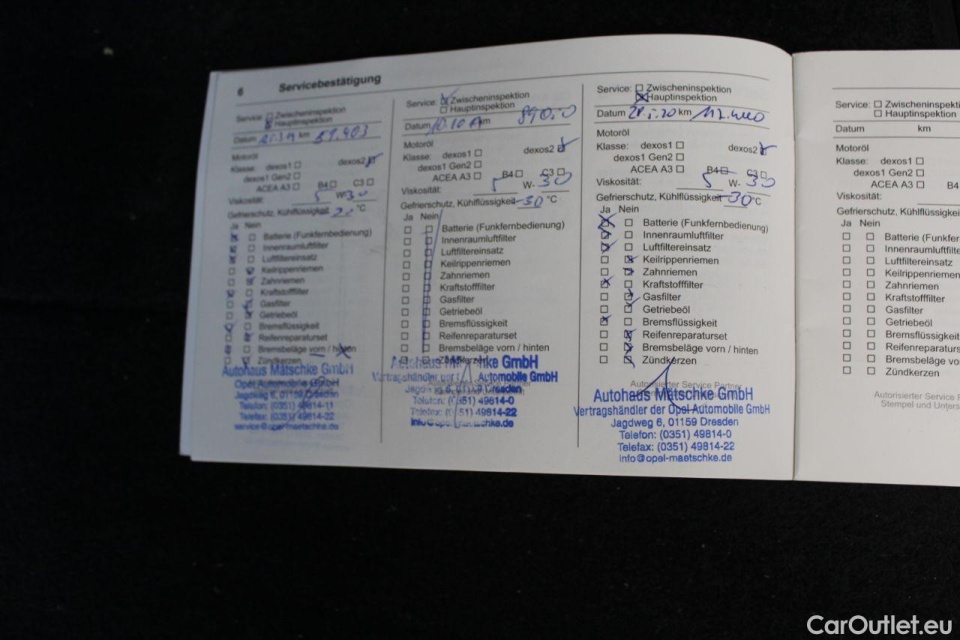 6 Servicebestätigung
Service: Zwischeninspektion
Hauptinspektion
Datum km 59.403
Motoröl
Klasse: dexos1 dexos2
dexos1 Gen2
ACEA A3 B4 C3
Viskosität: 5 W- 30
Gefrierschutz, Kühlflüssigkeit °C
Ja Nein
Batterie (Funkfernbedienung)
Innenraumluftfilter
Luftfiltereinsatz
Keilrippenriemen
Zahnriemen
Kraftstofffilter
Gasfilter
Getriebeöl
Bremsflüssigkeit
Reifenreparaturset
Bremsbeläge vorn / hinten
Zündkerzen
Autohaus Mätschke GmbH
Opel Automobile GmbH
Jagdweg 6, 01159 Dresden
Telefon: (0351) 49814-11
Telefax: (0351) 49814-22
service@opel-maetschke.de
Service: Zwischeninspektion
Hauptinspektion
Datum km
Motoröl
Klasse: dexos1 dexos2
dexos1 Gen2
ACEA A3 B4 C3
Viskosität: 5 W- 30
Gefrierschutz, Kühlflüssigkeit -30 °C
Ja Nein
Batterie (Funkfernbedienung)
Innenraumluftfilter
Luftfiltereinsatz
Keilrippenriemen
Zahnriemen
Kraftstofffilter
Gasfilter
Getriebeöl
Bremsflüssigkeit
Reifenreparaturset
Bremsbeläge vorn / hinten
Zündkerzen
Autohaus Mätschke GmbH
Vertragshändler der Opel Automobile GmbH
Jagdweg 6, 01159 Dresden
Telefon: (0351) 49814-0
Telefax: (0351) 49814-22
info@opel-maetschke.de
Service: Zwischeninspektion
Hauptinspektion
Datum km
Motoröl
Klasse: dexos1 dexos2
dexos1 Gen2
ACEA A3 B4 C3
Viskosität: 5 W- 30
Gefrierschutz, Kühlflüssigkeit -30 °C
Ja Nein
Batterie (Funkfernbedienung)
Innenraumluftfilter
Luftfiltereinsatz
Keilrippenriemen
Zahnriemen
Kraftstofffilter
Gasfilter
Getriebeöl
Bremsflüssigkeit
Reifenreparaturset
Bremsbeläge vorn / hinten
Zündkerzen
Autorisierter Service Partner
Autohaus Mätschke GmbH
Vertragshändler der Opel Automobile GmbH
Jagdweg 6, 01159 Dresden
Telefon: (0351) 49814-0
Telefax: (0351) 49814-22
info@opel-maetschke.de
Service: Zwischeninspekti
Hauptinspektion
Datum km
Motoröl
Klasse: dexos1
dexos1 Gen2
ACEA A3 B4
Viskosität:
Gefrierschutz, Kühlflüssigkei
Ja Nein
Batterie (Funkfer
Innenraumluftfilte
Luftfiltereinsatz
Keilrippenriemen
Zahnriemen
Kraftstofffilter
Gasfilter
Getriebeöl
Bremsflüssigkeit
Reifenreparaturse
Bremsbeläge vo
Zündkerzen
Autorisierter Service P
Stempel und Unters
CarOutlet.eu